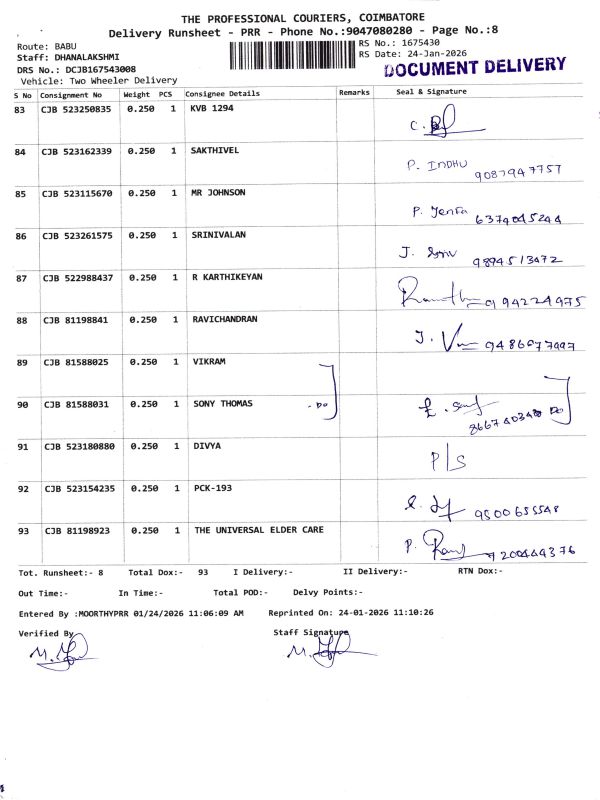 THE PROFESSIONAL COURIERS, COIMBATORE
Delivery Runsheet - PRR - Phone No.:9047080280 - Page No.:8
Route: BABU
RS No.: 1675430
Staff: DHANALAKSHMI
RS Date: 24-Jan-2026
DRS No.: DCJB167543008
DOCUMENT DELIVERY
Vehicle: Two Wheeler Delivery
S No Consignment No Weight PCS Consignee Details Remarks Seal & Signature
83 CJB 523250835 0.250 1 KVB 1294
84 CJB 523162339 0.250 1 SAKTHIVEL P. INDHU 9087947757
85 CJB 523115670 0.250 1 MR JOHNSON P. Jenra 6374045244
86 CJB 523261575 0.250 1 SRINIVALAN J. 9894513472
87 CJB 522988437 0.250 1 R KARTHIKEYAN 994224975
88 CJB 81198841 0.250 1 RAVICHANDRAN J.
89 CJB 81588025 0.250 1 VIKRAM
90 CJB 81588031 0.250 1 SONY THOMAS - Do Do
91 CJB 523180880 0.250 1 DIVYA P/S
92 CJB 523154235 0.250 1 PCK-193 9500655548
93 CJB 81198923 0.250 1 THE UNIVERSAL ELDER CARE P. 9200449376
Tot. Runsheet:- 8 Total Dox:- 93 I Delivery:- II Delivery:- RTN Dox:-
Out Time:- In Time:- Total POD:- Delvy Points:-
Entered By :MOORTHYPRR 01/24/2026 11:06:09 AM Reprinted On: 24-01-2026 11:10:26
Verified By Staff Signature